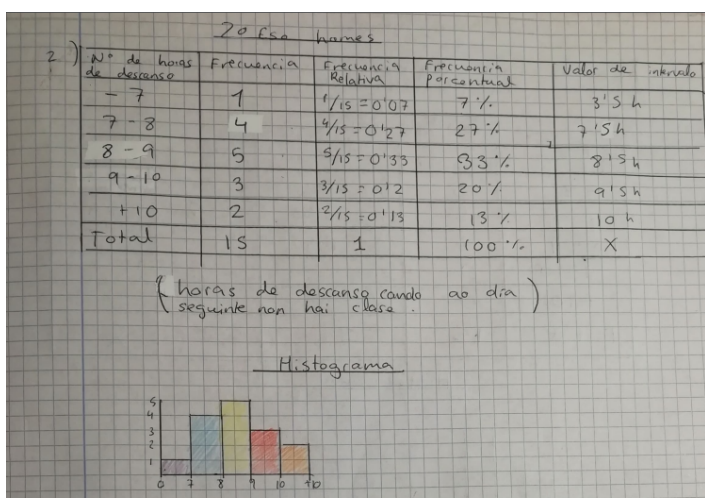 2º Eso homes
2) Nº de horas de descanso Frecuencia Frecuencia Relativa Frecuencia Porcentual Valor de intervalo
- 7 1 1/15 = 0'07 7% 3'5 h
7 - 8 4 4/15 = 0'27 27% 7'5 h
8 - 9 5 5/15 = 0'33 33% 8'5 h
9 - 10 3 3/15 = 0'2 20% 9'5 h
+10 2 2/15 = 0'13 13% 10 h
Total 15 1 100% X
(horas de descanso cando ao día
seguinte non hai clase.)
Histograma
5
4
3
2
1
0 7 8 9 10 +10